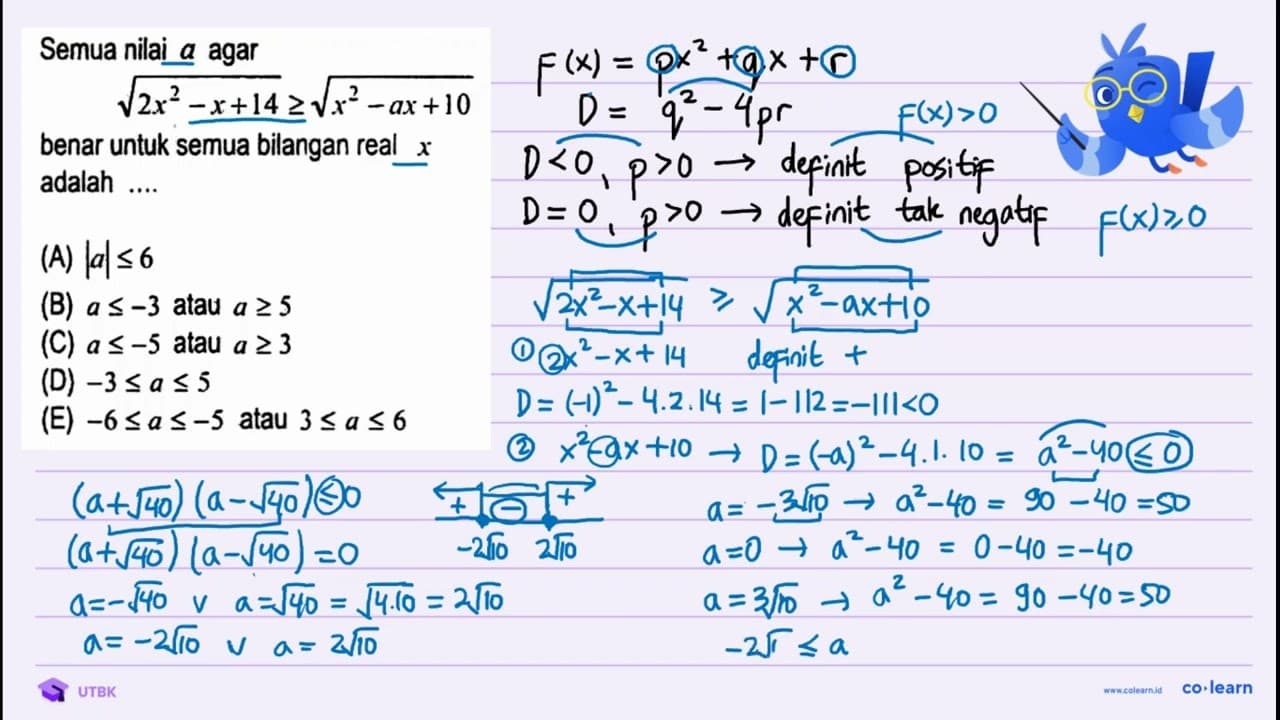 Semua nilai a agar
√(2x² – x + 14) ≥ √(x² – ax + 10)
benar untuk semua bilangan real x
adalah ....
(A) |a| ≤ 6
(B) a ≤ –3 atau a ≥ 5
(C) a ≤ –5 atau a ≥ 3
(D) –3 ≤ a ≤ 5
(E) –6 ≤ a ≤ –5 atau 3 ≤ a ≤ 6
F(x) = px² + qx + r
D = q² – 4pr
F(x) > 0
D < 0, p > 0 → definit positif
D = 0, p > 0 → definit tak negatif F(x) ≥ 0
√(2x² – x + 14) ≥ √(x² – ax + 10)
① 2x² – x + 14 definit +
D = (–1)² – 4.2.14 = 1 – 112 = –111 < 0
② x² – ax + 10 → D = (–a)² – 4.1.10 = a² – 40 ≤ 0
(a + √40) (a – √40) ≤ 0
(a + √40) (a – √40) = 0
a = –√40 v a = √40 = √4.10 = 2√10
a = –2√10 v a = 2√10
+ – +
–2√10 2√10
a = –3√10 → a² – 40 = 90 – 40 = 50
a = 0 → a² – 40 = 0 – 40 = –40
a = 3√10 → a² – 40 = 90 – 40 = 50
–2√1 ≤ a
UTBK
www.colearn.id co·learn